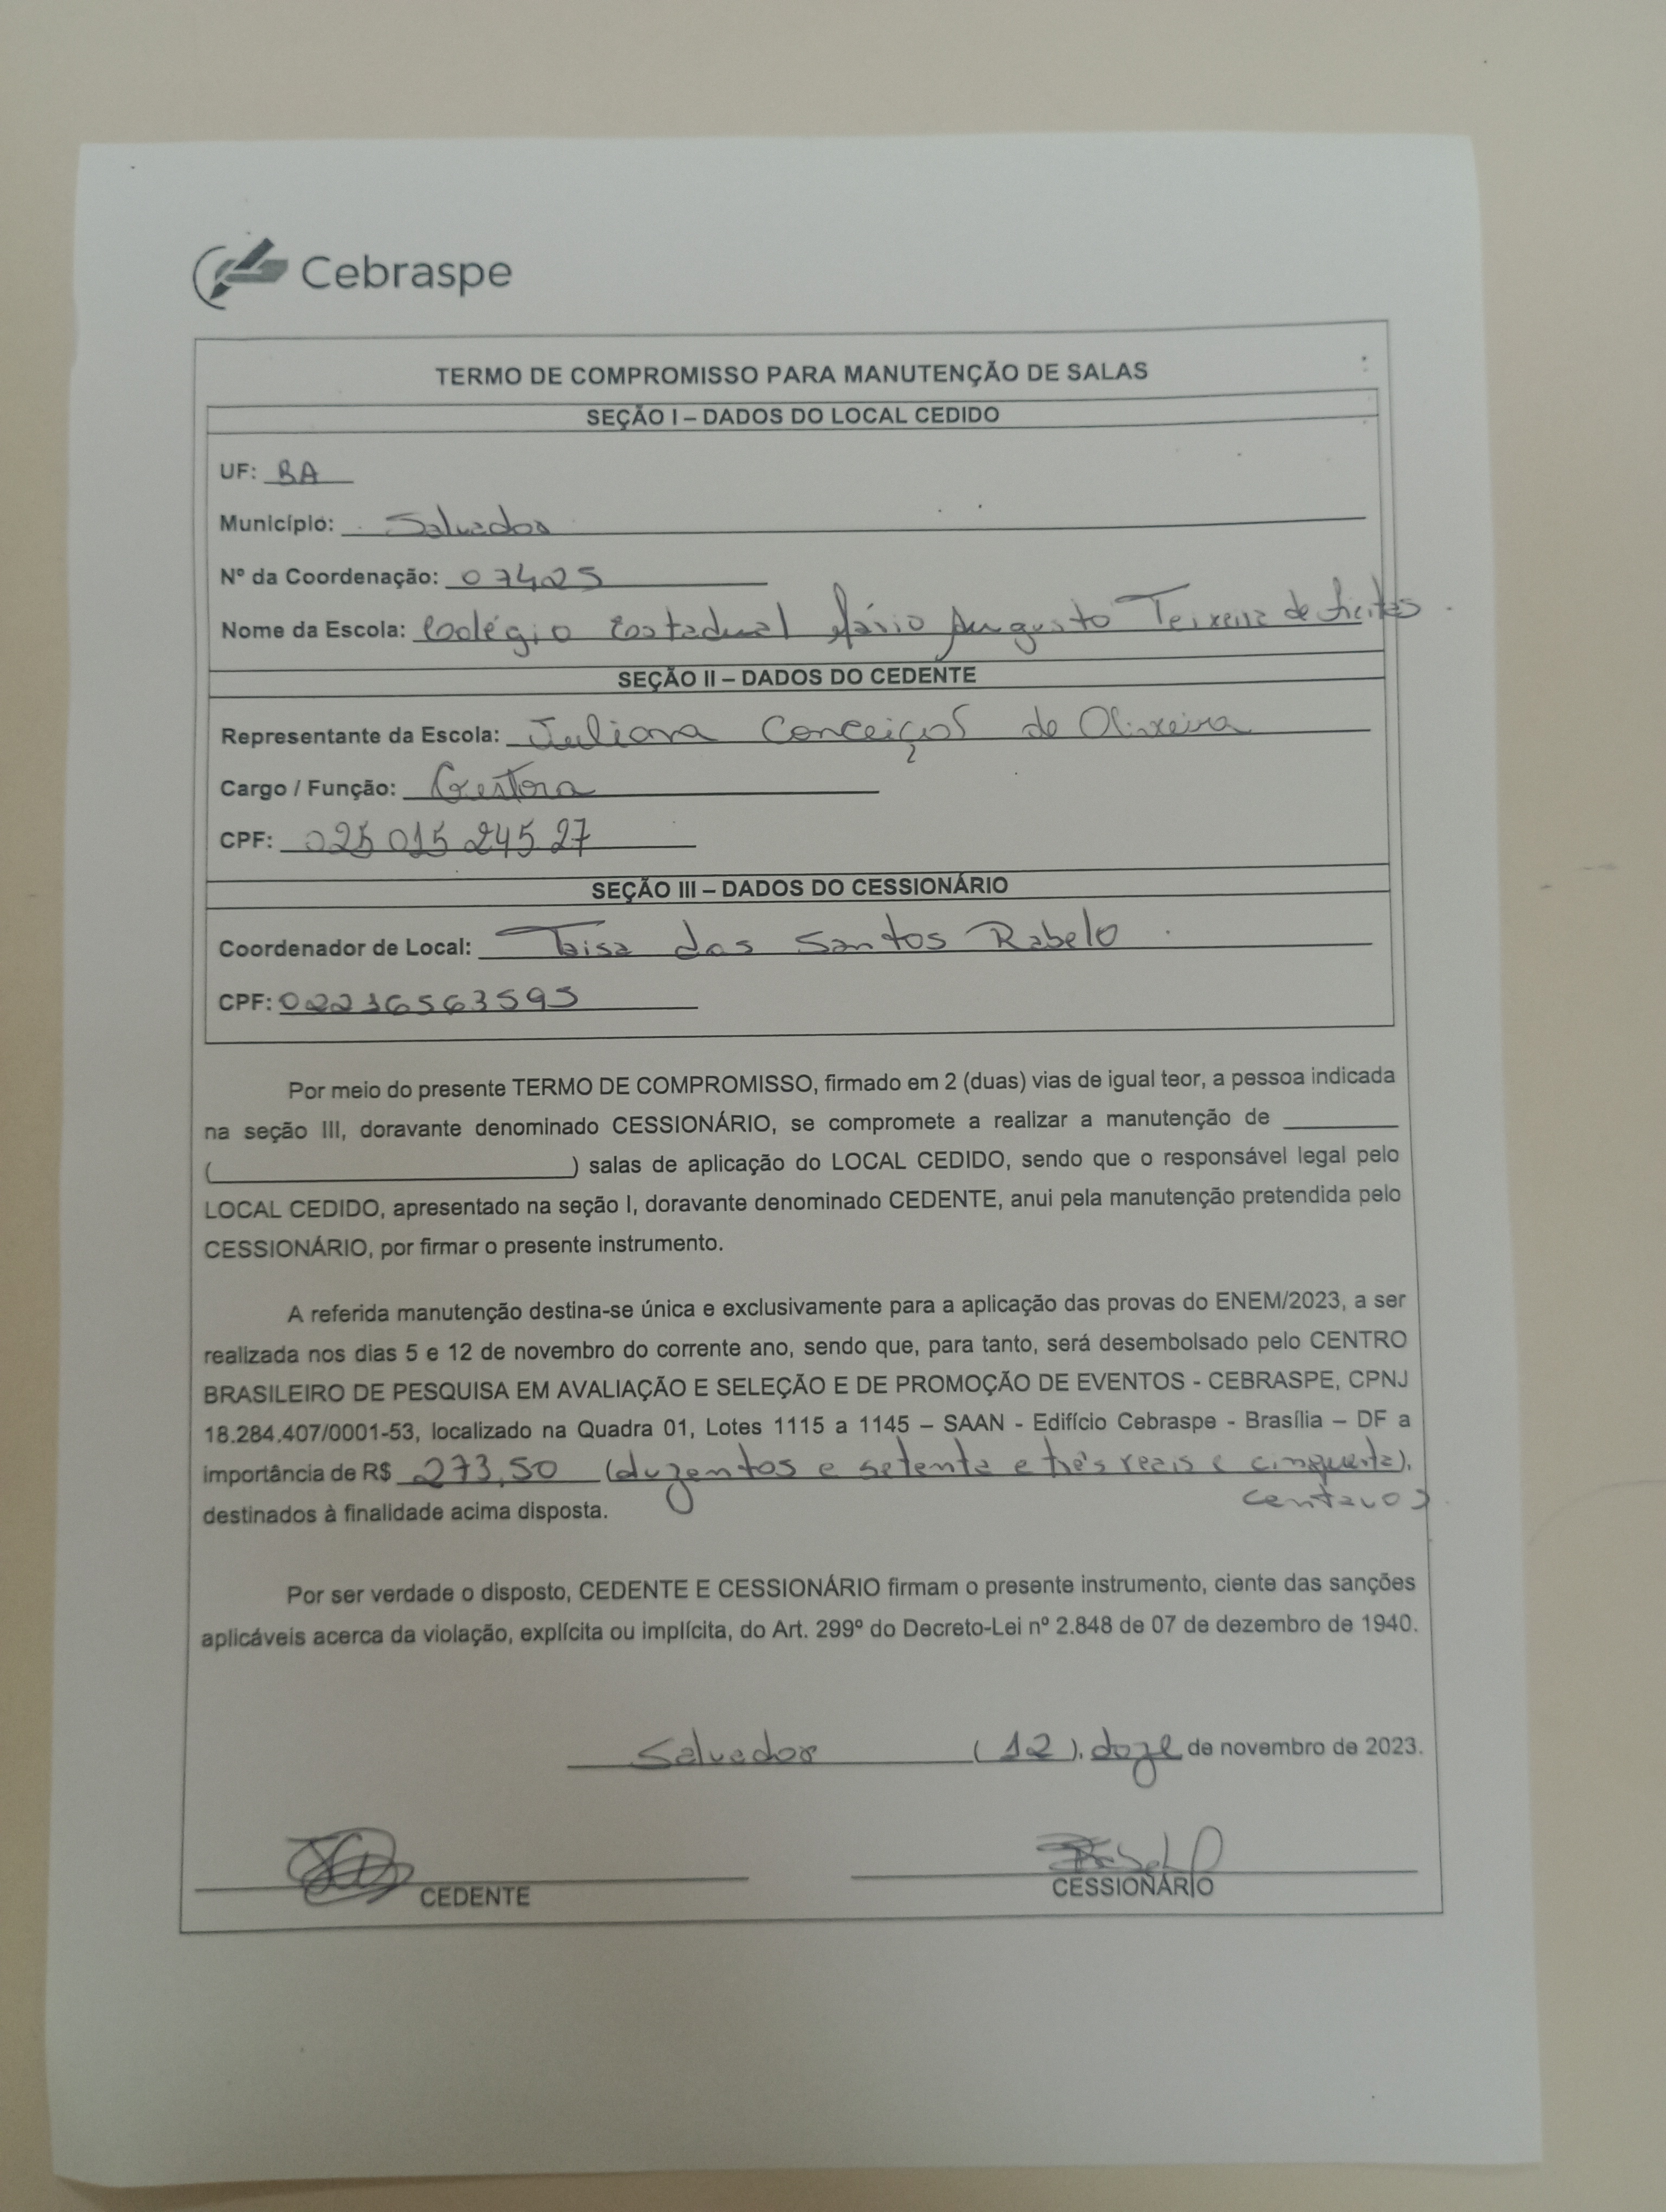 Cebraspe
TERMO DE COMPROMISSO PARA MANUTENÇÃO DE SALAS
SEÇÃO I – DADOS DO LOCAL CEDIDO
UF: BA
Município: Salvador
Nº da Coordenação: 07425
Nome da Escola: Colégio Estadual Mário Augusto Teixeira de Freitas
SEÇÃO II – DADOS DO CEDENTE
Representante da Escola: Juliana Conceição de Oliveira
Cargo / Função: Gestora
CPF: 025 015 245 27
SEÇÃO III – DADOS DO CESSIONÁRIO
Coordenador de Local: Taisa dos Santos Rabelo
CPF: 02216563595
Por meio do presente TERMO DE COMPROMISSO, firmado em 2 (duas) vias de igual teor, a pessoa indicada
na seção III, doravante denominado CESSIONÁRIO, se compromete a realizar a manutenção de ________
(__________________________) salas de aplicação do LOCAL CEDIDO, sendo que o responsável legal pelo
LOCAL CEDIDO, apresentado na seção I, doravante denominado CEDENTE, anui pela manutenção pretendida pelo
CESSIONÁRIO, por firmar o presente instrumento.
A referida manutenção destina-se única e exclusivamente para a aplicação das provas do ENEM/2023, a ser
realizada nos dias 5 e 12 de novembro do corrente ano, sendo que, para tanto, será desembolsado pelo CENTRO
BRASILEIRO DE PESQUISA EM AVALIAÇÃO E SELEÇÃO E DE PROMOÇÃO DE EVENTOS - CEBRASPE, CPNJ
18.284.407/0001-53, localizado na Quadra 01, Lotes 1115 a 1145 – SAAN - Edifício Cebraspe - Brasília – DF a
importância de R$ 273,50 (duzentos e setenta e três reais e cinquenta),
centavos
destinados à finalidade acima disposta.
Por ser verdade o disposto, CEDENTE E CESSIONÁRIO firmam o presente instrumento, ciente das sanções
aplicáveis acerca da violação, explícita ou implícita, do Art. 299º do Decreto-Lei nº 2.848 de 07 de dezembro de 1940.
Salvador (12), doze de novembro de 2023.
CEDENTE CESSIONÁRIO